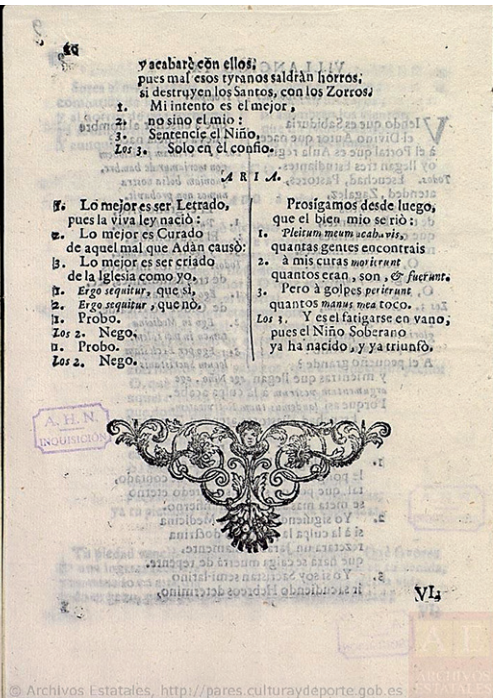 y acabarè con ellos;
pues mal esos tyranos saldràn horros,
si destruyen los Santos, con los Zorros.
1. Mi intento es el mejor,
2. no sino el mio:
3. Sentencie el Niño.
Los 3. Solo en èl confio.
ARIA.
1. Lo mejor es ser Letrado,
pues la viva ley naciò:
2. Lo mejor es Curado
de aquel mal que Adàn causò:
3. Lo mejor es ser criado
de la Iglesia como yo,
1. Ergo sequitur, que sì,
2. Ergo sequitur, que nò.
1. Probo.
Los 2. Nego.
1. Probo.
Los 2. Nego.
Prosigamos desde luego,
que el bien mio se riò:
1. Pleitum meum acabavis,
quantas gentes encontrais
2. à mis curas morierunt
quantos eran, son, & fuerunt.
3. Pero à golpes perierunt,
quantos manus mea toco.
Los 3. Y es el fatigarse en vano,
pues el Niño Soberano
ya ha nacido, y ya triunfò.
A. H. N.
INQUISICIÓN
VI.
ARCHIVOS
ESTATALES
© Archivos Estatales, http://pares.culturaydeporte.gob.es